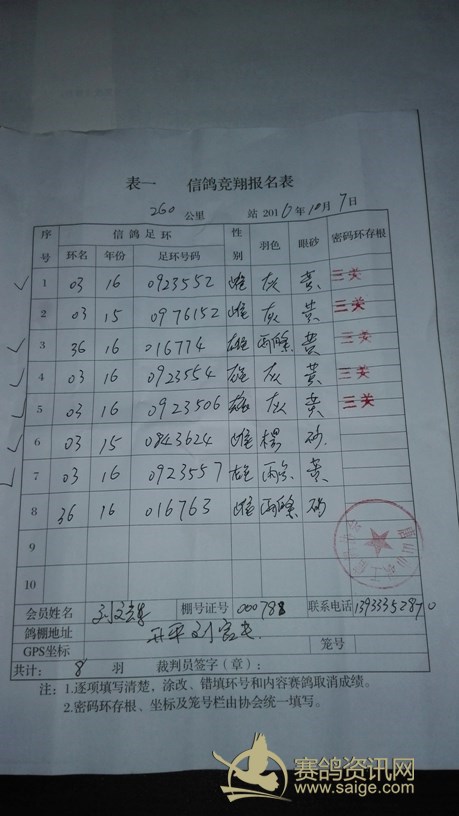 表一 信鸽竞翔报名表
260 公里 站 2016年10月7日
序号 信鸽足环 性别 羽色 眼砂 密码环存根
环名 年份 足环号码
1 03 16 0923552 雌 灰 黄 三关
2 03 15 0976152 雌 灰 黄 三关
3 36 16 016774 雄 雨 黄 三关
4 03 16 0923554 雄 灰 黄 三关
5 03 16 0923506 雄 灰 黄 三关
6 03 15 0843624 雌 砂
7 03 16 0923557 雄 雨 黄
8 36 16 016763 雌 雨 砂
9
10
会员姓名 刘 棚号证号 000788 联系电话 13933352870
鸽棚地址 开平刘官
GPS坐标 笼号
共计: 8 羽 裁判员签字(章):
注:1.逐项填写清楚,涂改、错填环号和内容赛鸽取消成绩。
2.密码环存根、坐标及笼号栏由协会统一填写。
赛鸽资讯网
www.saige.com